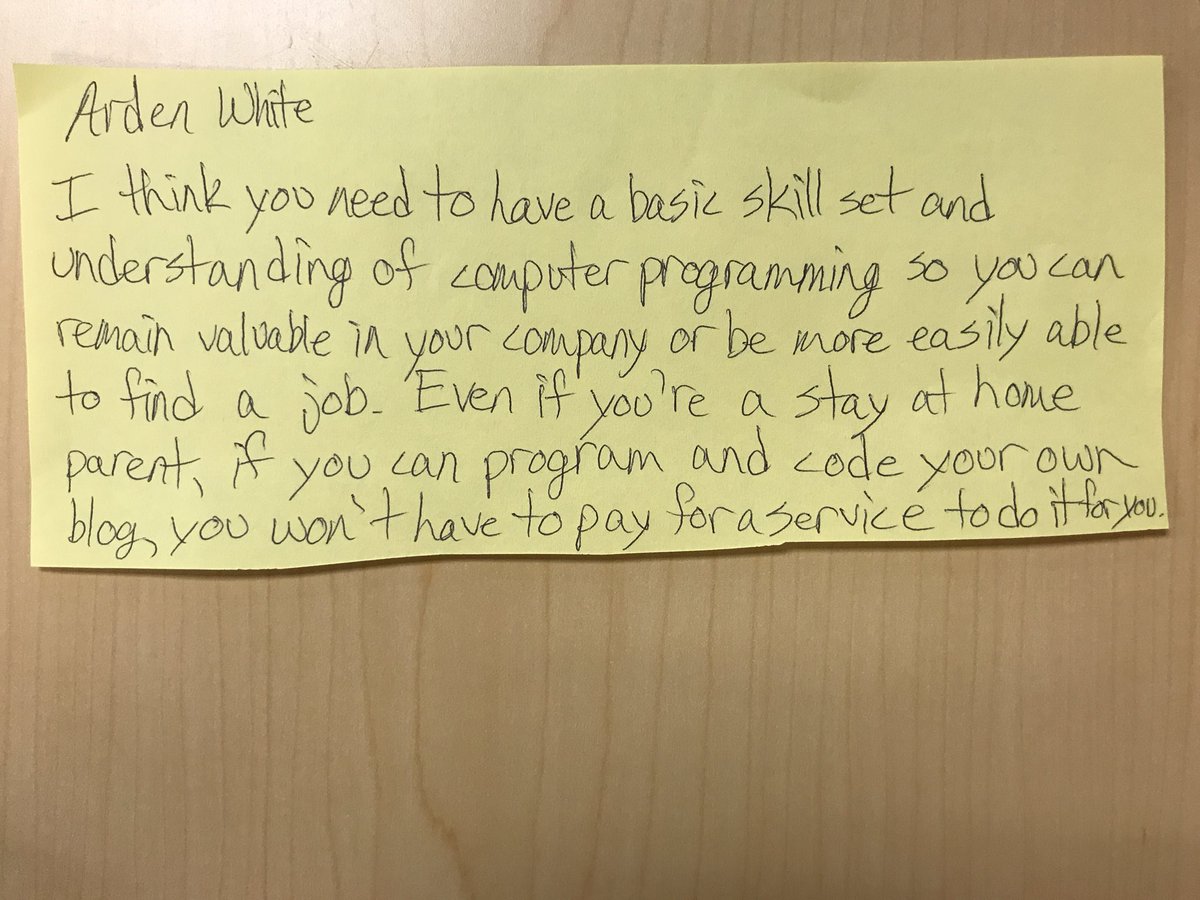 Arden White
I think you need to have a basic skill set and
understanding of computer programming so you can
remain valuable in your company or be more easily able
to find a job. Even if you're a stay at home
parent, if you can program and code your own
blog, you won't have to pay for a service to do it for you.